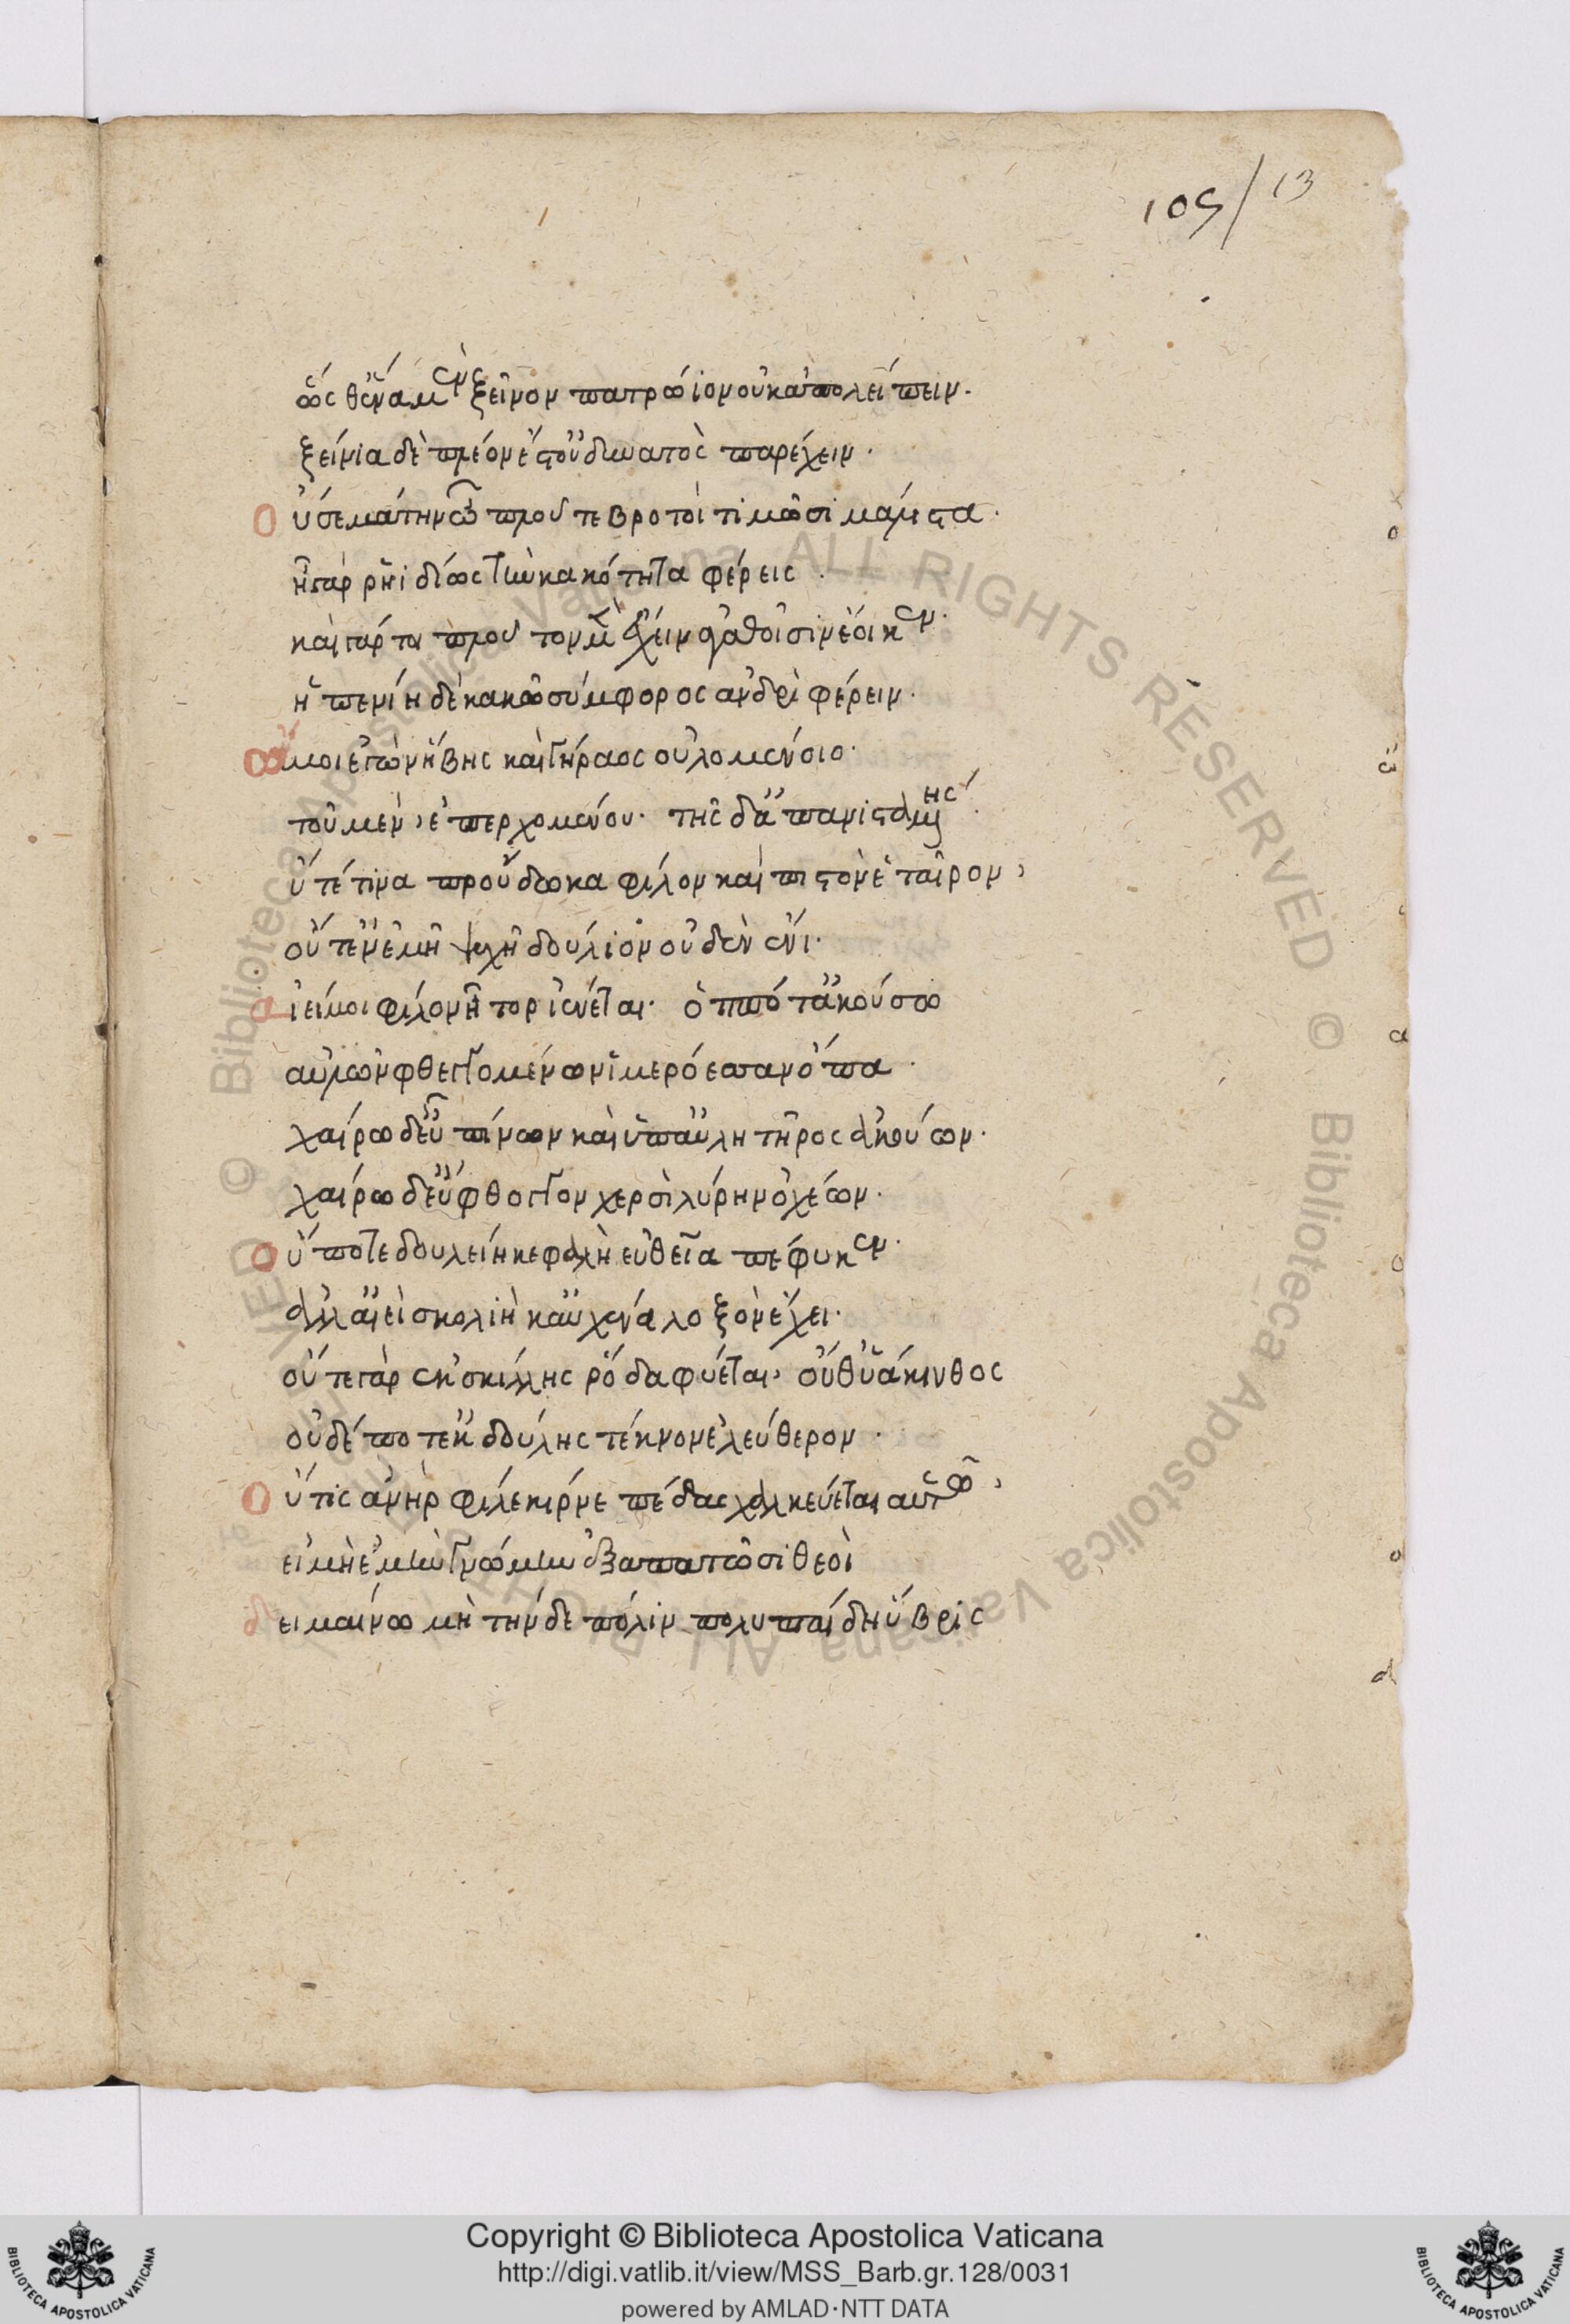 105/13
ὥς θ' ἕνα μὲν ξεῖνον πατρώϊον οὐκ ἀπολείπειν.
ξείνια δὲ πλέον ἔστ' οὐ δυνατὸς παρέχειν.
Οὔ σε μάτην ὦ πλοῦτε βροτοὶ τιμῶσι μάλιστα.
ἦ γὰρ ῥηϊδίως τὴν κακότητα φέρεις.
καὶ γάρ τοι πλοῦτον μὲν ἔχειν ἀγαθοῖσιν ἔοικεν.
ἡ πενίη δὲ κακῷ σύμφορος ἀνδρὶ φέρειν.
Ὤ μοι ἐγὼν ἥβης καὶ γήραος οὐλομένοιο.
τοῦ μὲν, ἐπερχομένου. τῆς δ' ἀπανισταμένης.
Οὔτέ τινα προὔδωκα φίλον καὶ πιστὸν ἑταῖρον,
οὔτ' ἐν ἐμῇ ψυχῇ δούλιον οὐδὲν ἔνι.
Αἰεί μοι φίλον ἦτορ ἰαίνεται. ὁππότ' ἀκούσω
αὐλῶν φθεγγομένων ἱμερόεσσαν ὄπα.
χαίρω δ' εὖ πίνων καὶ ὑπ' αὐλητῆρος ἀκούων.
χαίρω δ' εὔφθογγον χερσὶ λύρην ὀχέων.
Οὔποτε δουλείη κεφαλὴ εὐθεῖα πέφυκεν.
ἀλλ' αἰεὶ σκολιὴ καὐχένα λοξὸν ἔχει.
οὔτε γὰρ ἐκ σκίλλης ῥόδα φύεται, οὔθ' ὑάκινθος
οὐδέποτ' ἐκ δούλης τέκνον ἐλεύθερον.
Οὔτις ἀνὴρ φίλε κύρνε πέδας χαλκεύεται αὑτῷ,
εἰ μὴ ἐμὴν γνώμην ἐξαπατῶσι θεοὶ
δειμαίνω μὴ τήνδε πόλιν πολυπαίδη ὕβρις
Copyright © Biblioteca Apostolica Vaticana
http://digi.vatlib.it/view/MSS_Barb.gr.128/0031
powered by AMLAD·NTT DATA